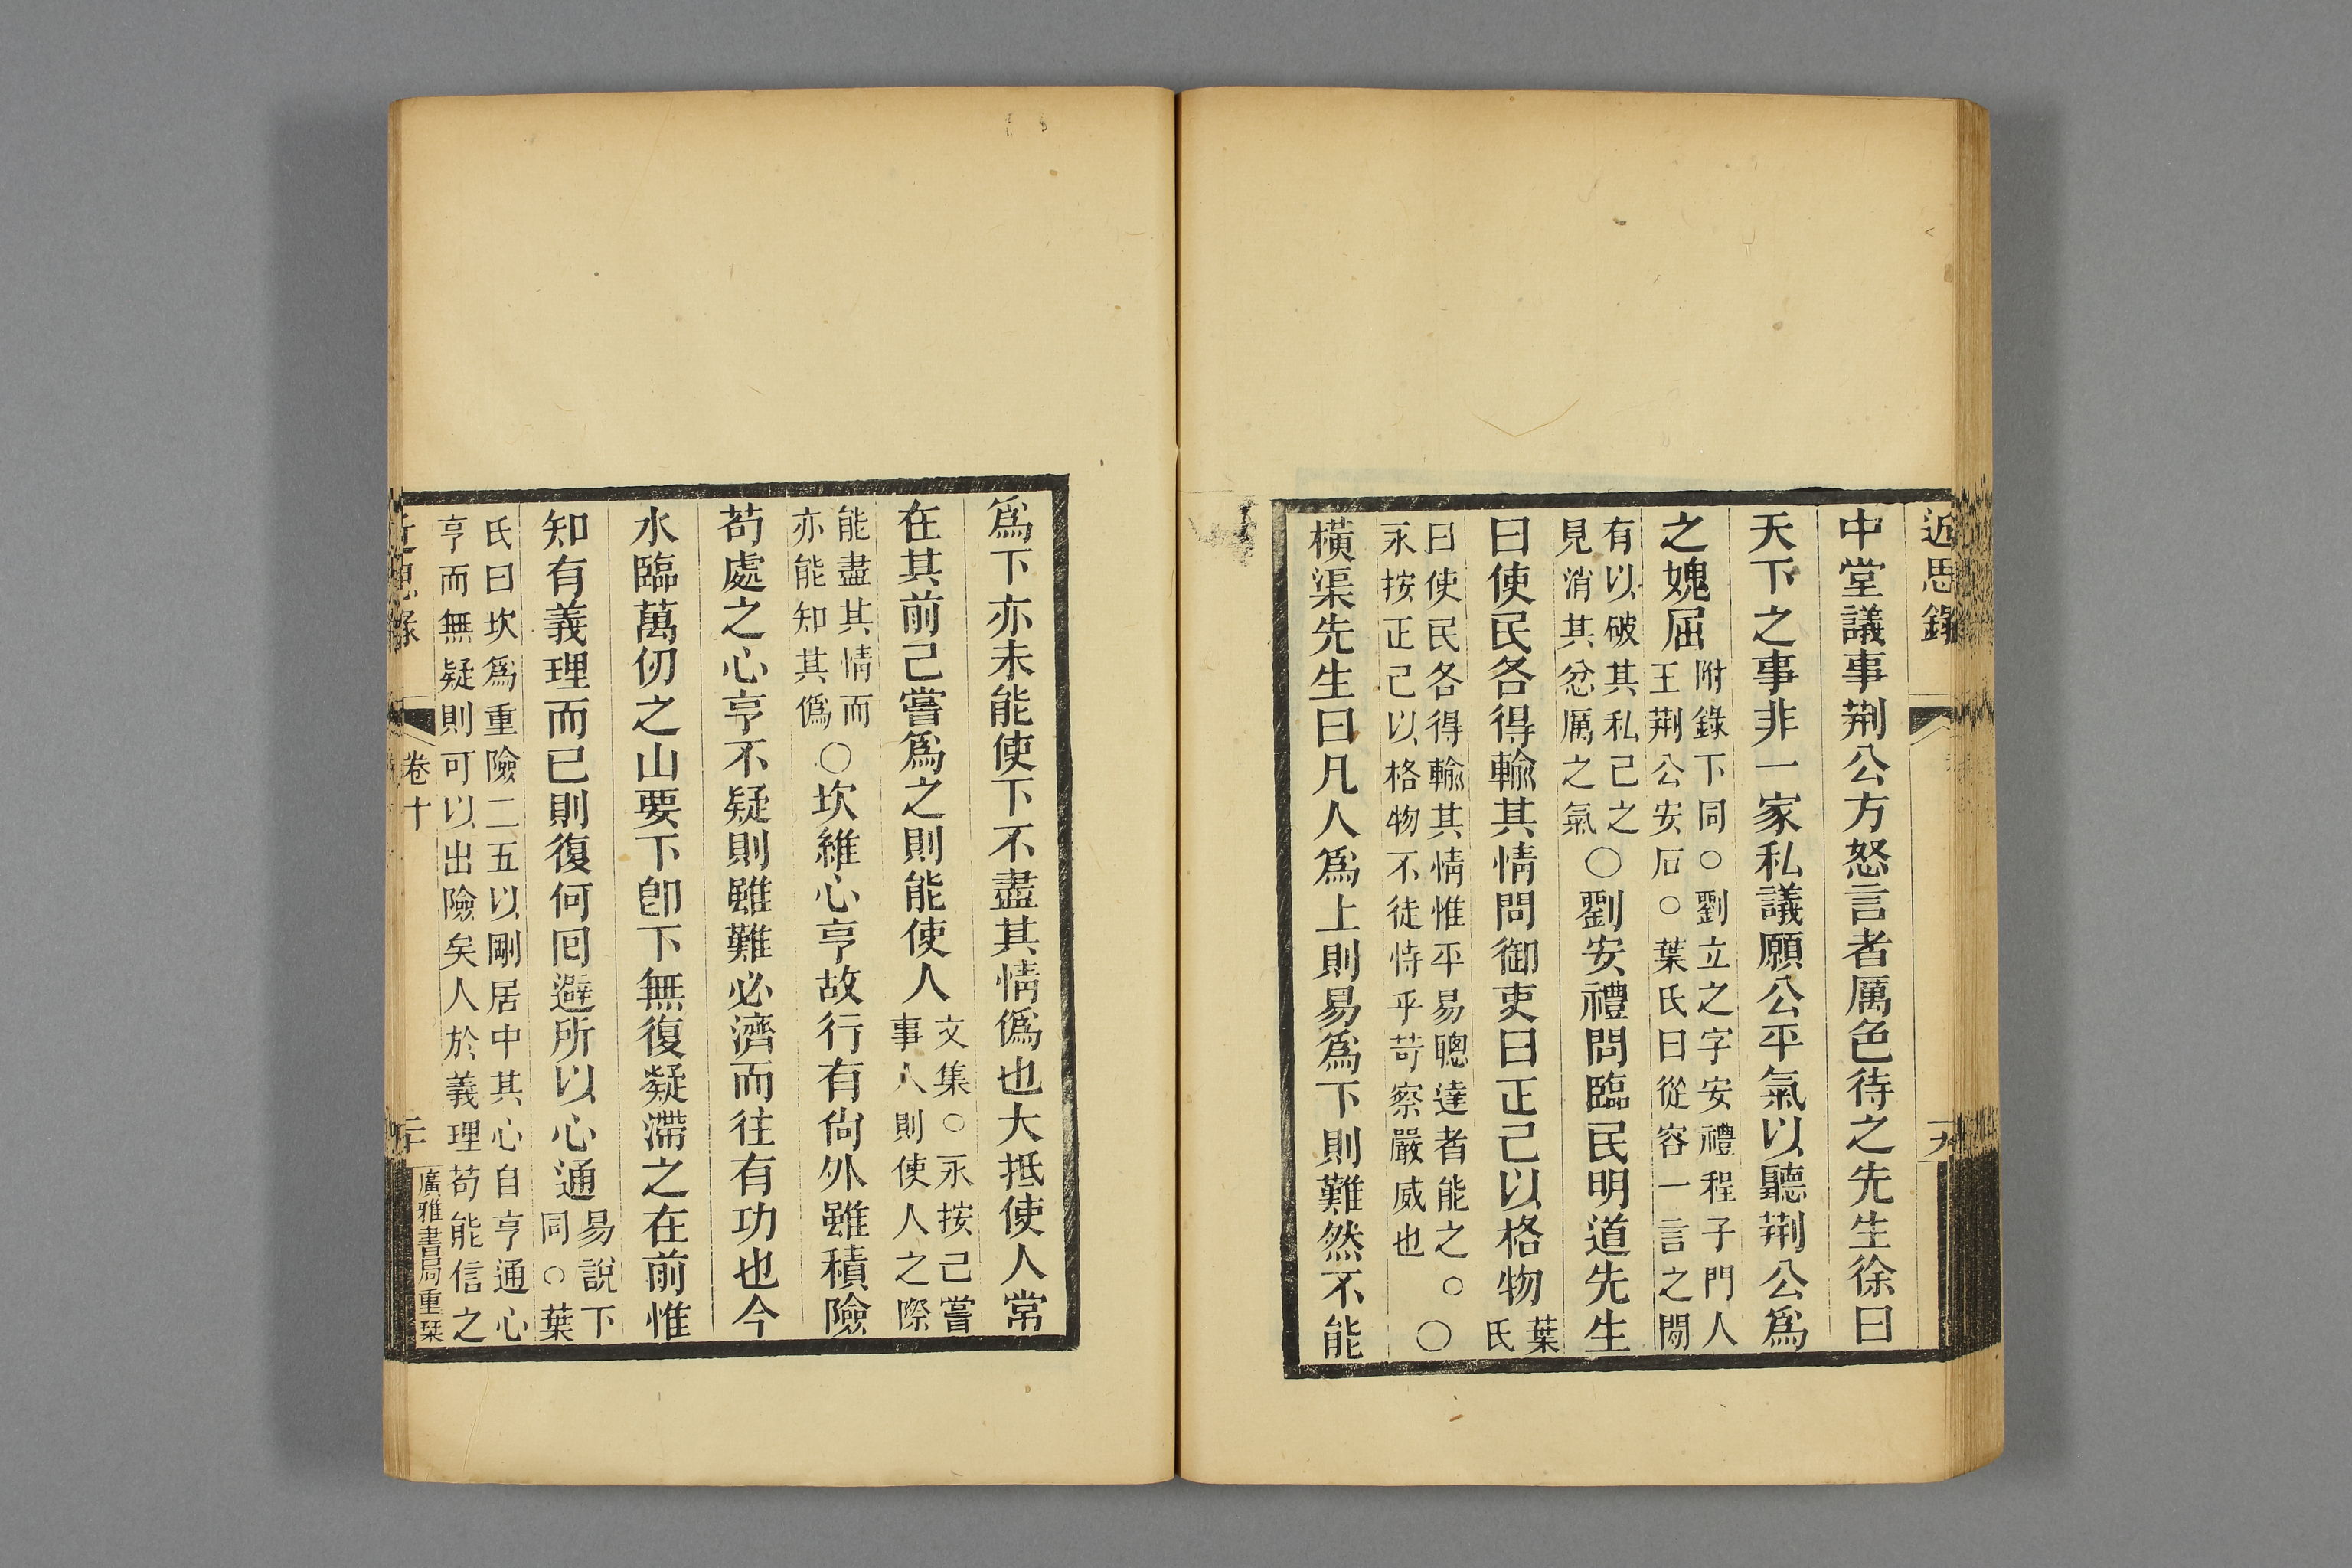 近思錄
十九
中堂議事荆公方怒言者厲色待之先生徐曰
天下之事非一家私議願公平氣以聽荆公爲
之媿屈附錄下同○劉立之字安禮程子門人
王荆公安石○葉氏曰從容一言之閒
有以破其私己之
見消其忿厲之氣○劉安禮問臨民明道先生
曰使民各得輸其情問御吏曰正己以格物葉
氏
曰使民各得輸其情惟平易聰達者能之○○
永按正己以格物不徒恃乎苛察嚴威也
橫渠先生曰凡人爲上則易爲下則難然不能
爲下亦未能使下不盡其情僞也大抵使人常
在其前己嘗爲之則能使人文集○永按己嘗
事人則使人之際
能盡其情而
亦能知其僞○坎維心亨故行有尙外雖積險
苟處之心亨不疑則雖難必濟而往有功也今
水臨萬仞之山要下卽下無復凝滯之在前惟
知有義理而已則復何囘避所以心通易說下
同○葉
氏曰坎爲重險二五以剛居中其心自亨通心
亨而無疑則可以出險矣人於義理苟能信之
近思錄
卷十
二十
廣雅書局重栞